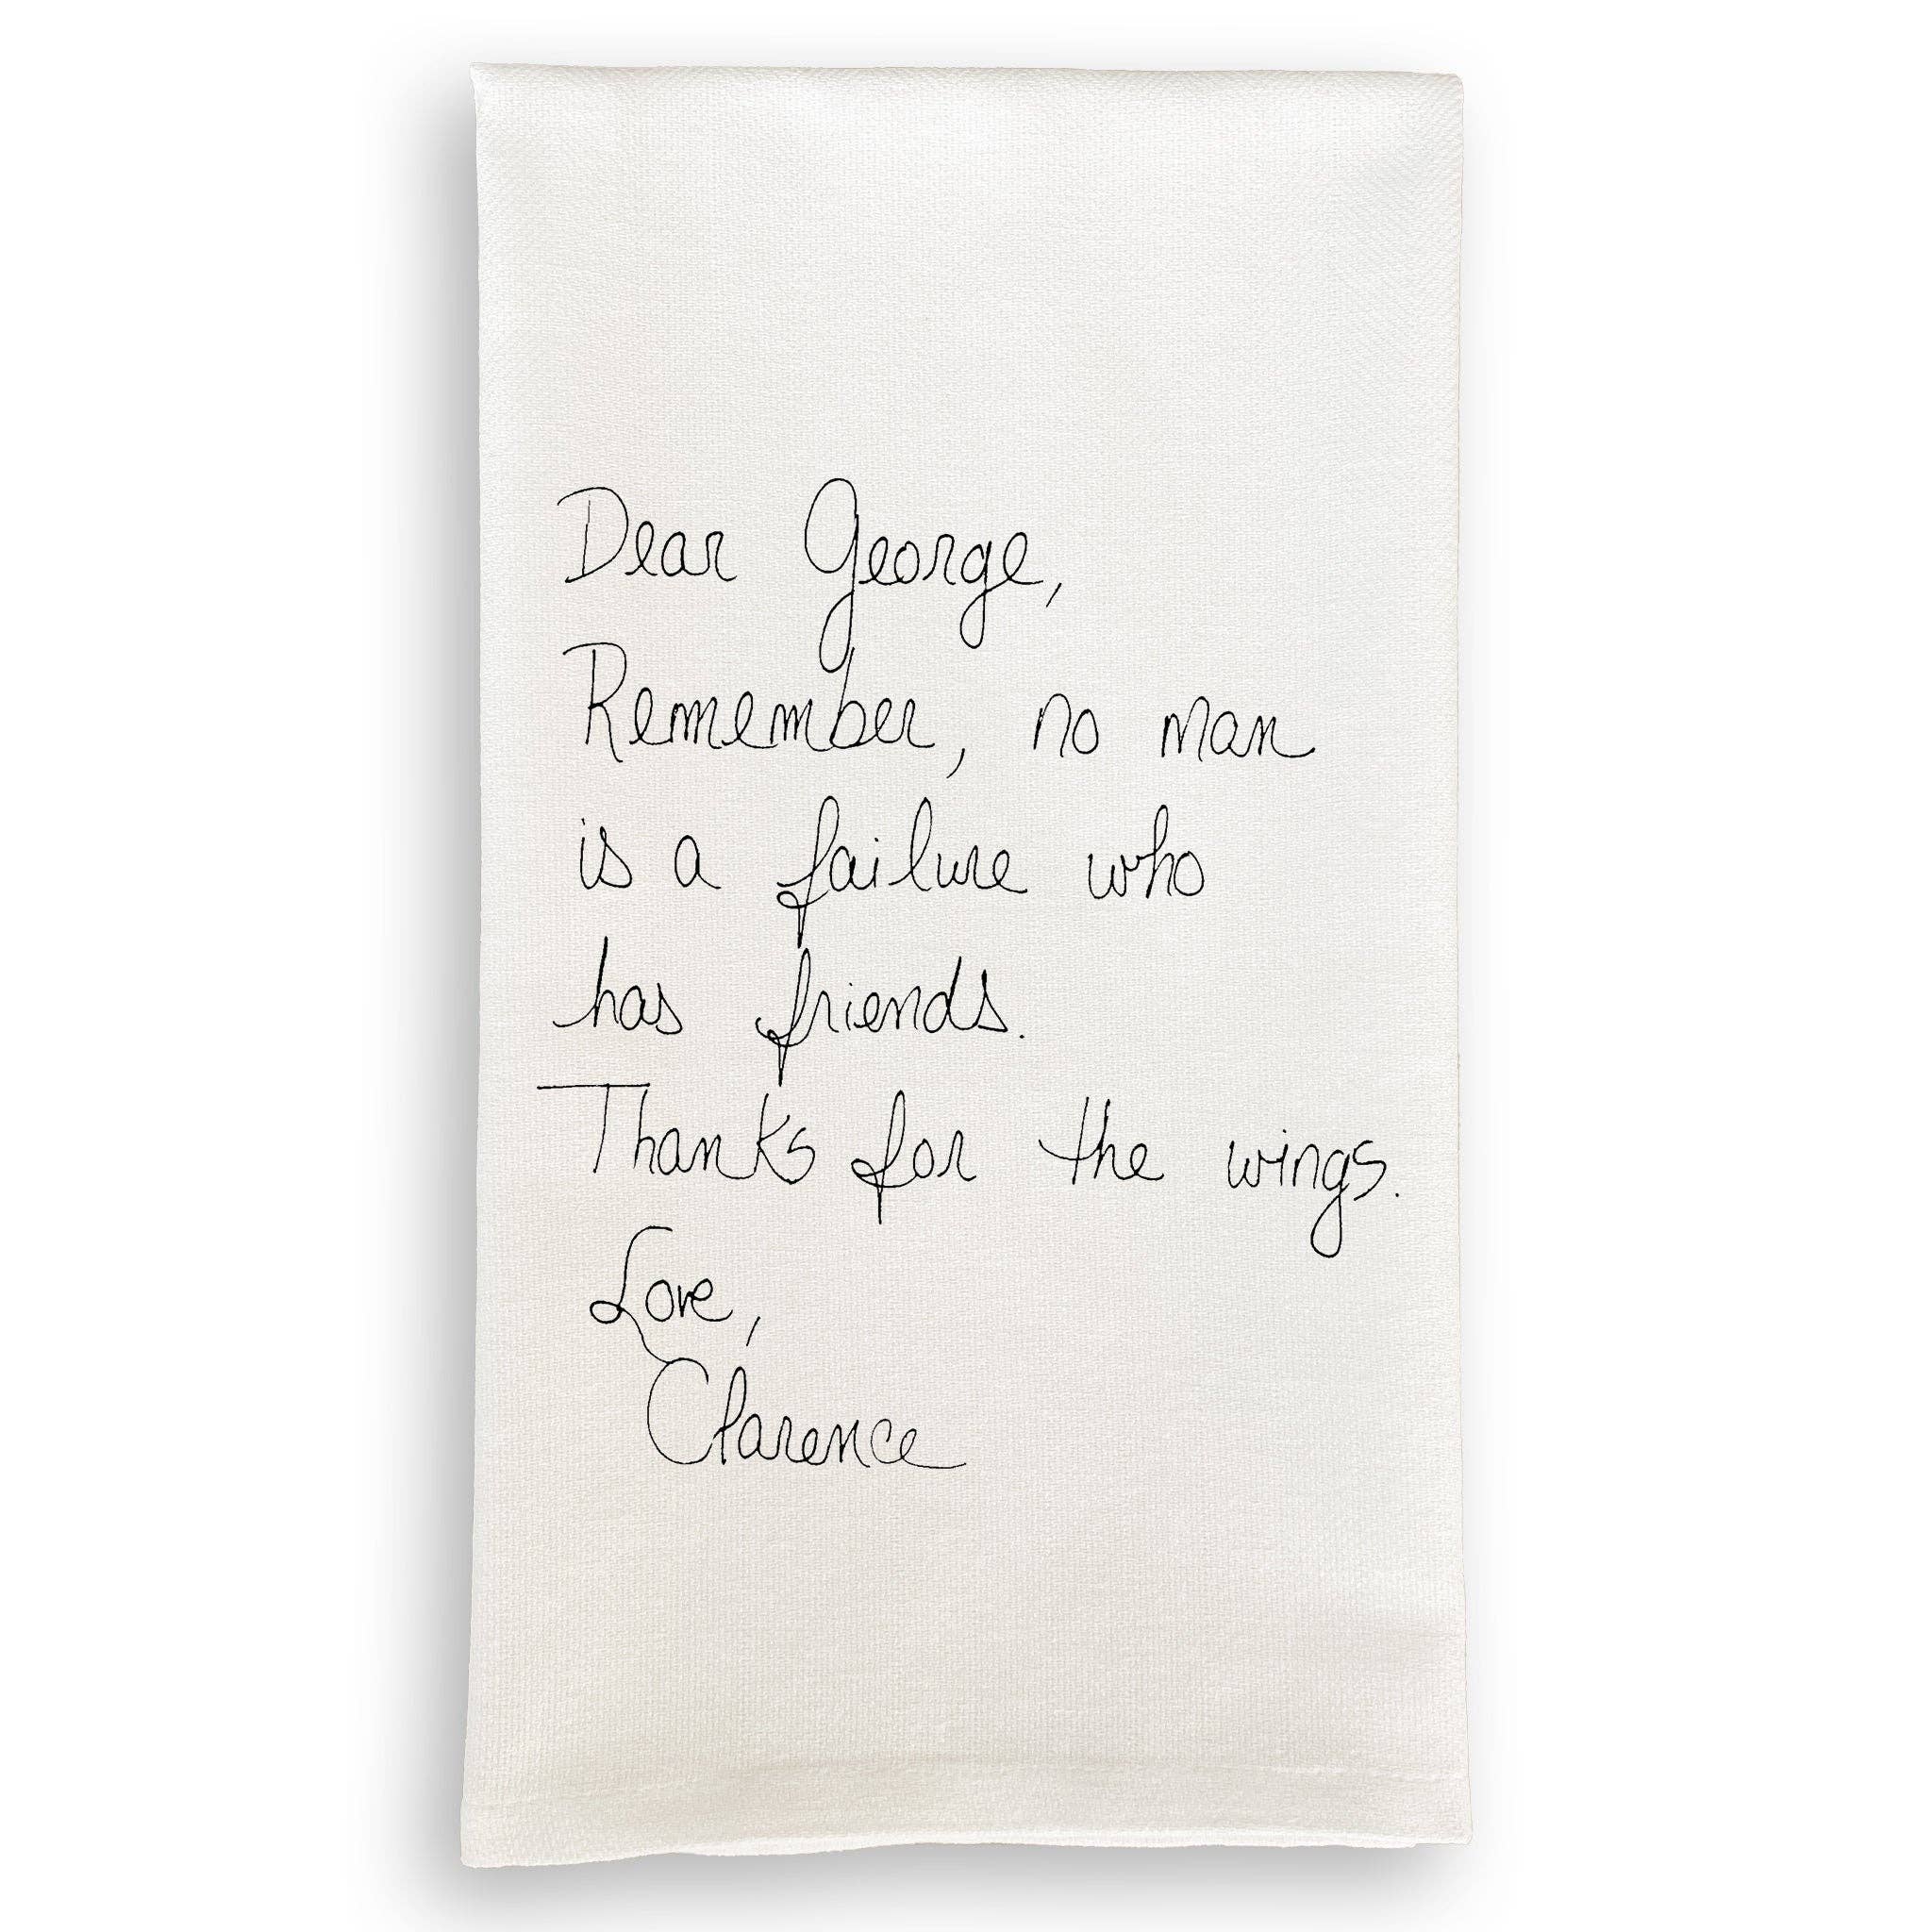 Dear George,
Remember, no man
is a failure who
has friends.
Thanks for the wings.
Love,
Clarence